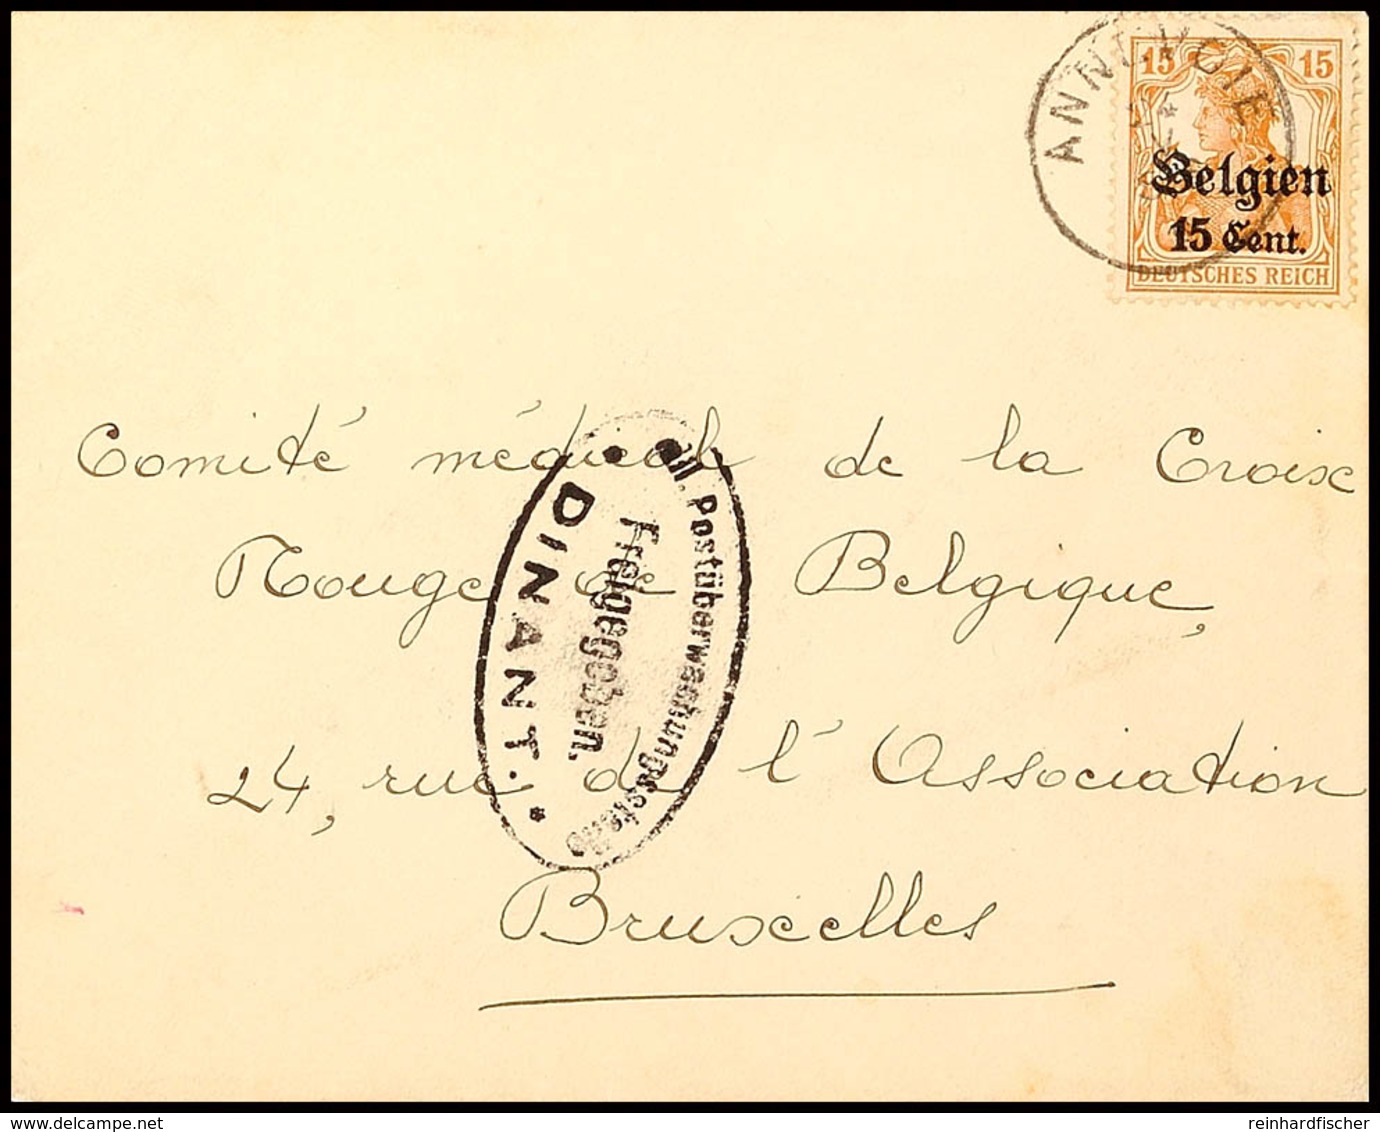 ANNEVOIE
15 15
Belgien
15 Cent.
DEUTSCHES REICH
Comité médical de la Croix
Rouge de Belgique,
24, rue de l'Association
Bruxelles
Mil. Postüberwachungsstelle
Freigegeben.
DINANT. *
reinhardfischer